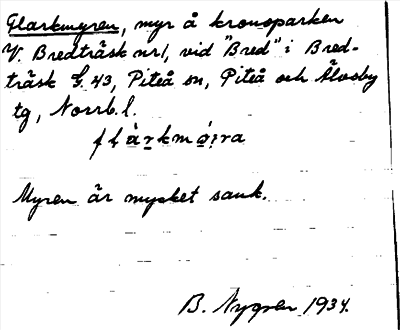 Flarkmyren, myr å kronoparken
V. Bredträsk nr 1, vid "Bred" i Bred-
träsk G. 43, Piteå sn, Piteå och Älvsby
tg, Norrb. l.
flàrkmø̀i̯ra
Myren är mycket sank.
B. Nygren 1934.